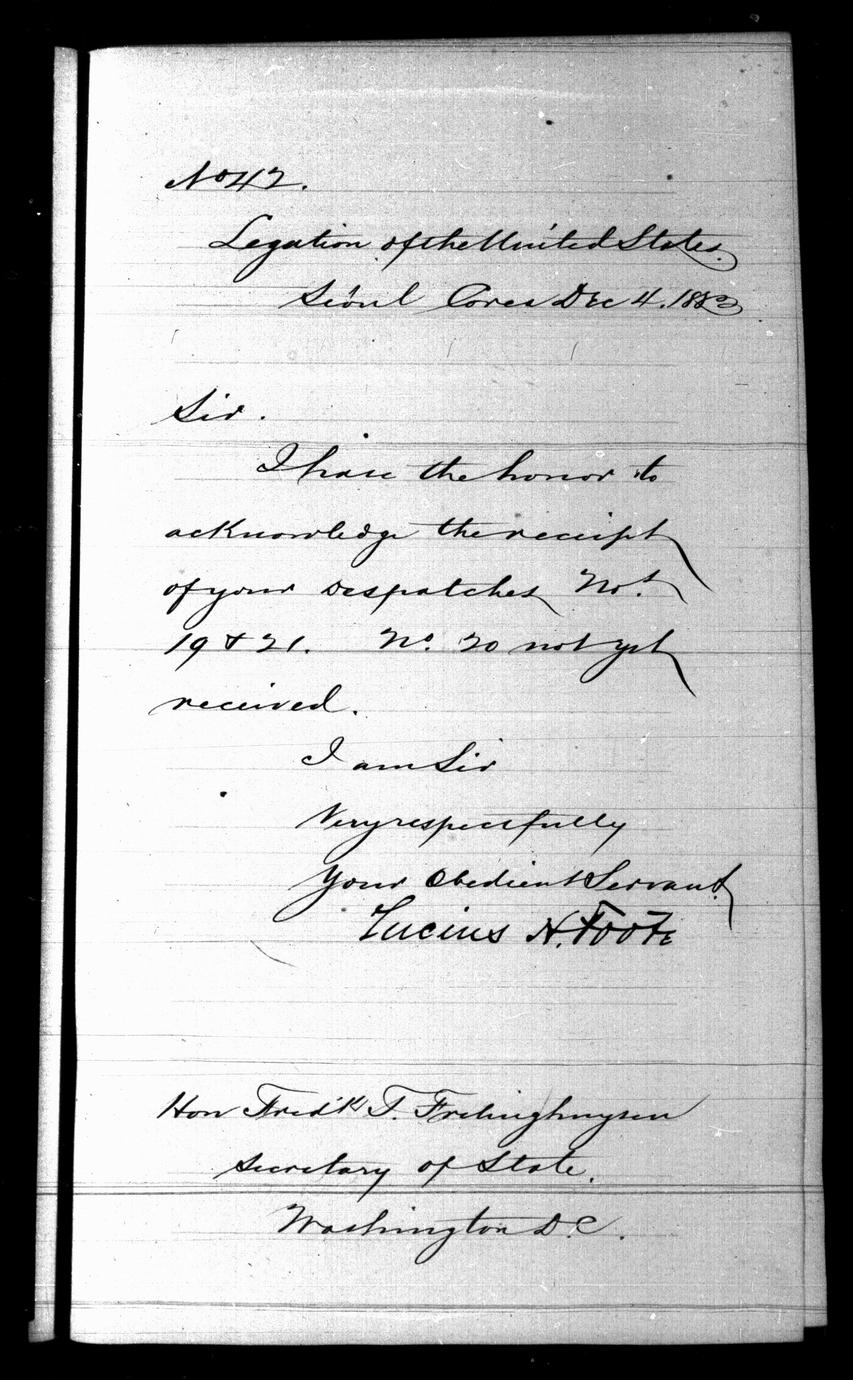 No 42.
Legation of the United States.
Séoul Corea Dec 4. 1883
Sir.
I have the honor to
acknowledge the receipt
of your despatches Nos.
19 & 21. No. 20 not yet
received.
I am Sir
Very respectfully
Your Obedient Servant
Lucius H. Foote
Hon Fred'k T. Frelinghuysen
Secretary of State.
Washington D.C.